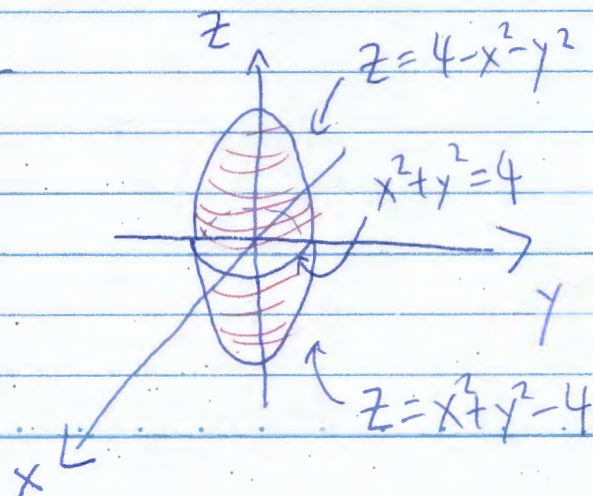 Z
Z = 4-x²-y²
x²+y²=4
Y
Z = x²+y²-4
x